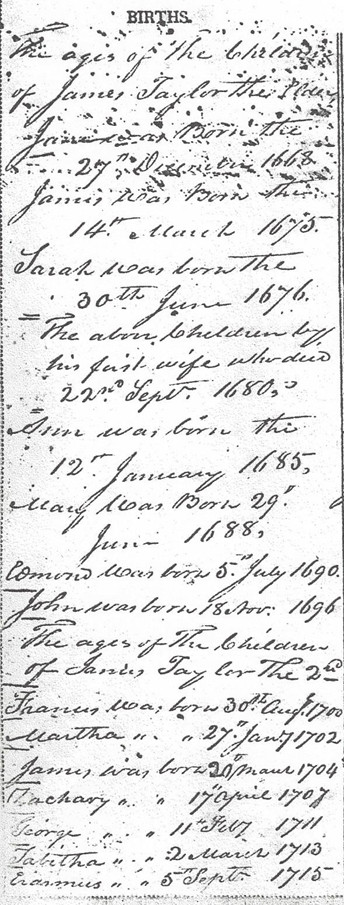 BIRTHS.
The ages of the Children
of James Taylor the
Jane was Born the
27th December 1668
James was Born the
14th March 1675.
Sarah was born the
30th June 1676.
The above Children by
his first wife who died
22nd Septr. 1680,
Ann was born the
12th January 1685,
Mary Was Born 29th
June 1688,
Edmond was born 5th July 1690.
John was born 18 Nov. 1696
The ages of the Children
of James Taylor the 2nd
Francis was born 30th Augt. 1700
Martha " " 27th Jany 1702
James was born 20th March 1704
Zachary " " 17th april 1707
George " " 11th Feby 1711
Tabitha " " 2 March 1713
Erasmus " " 5th Septr 1715